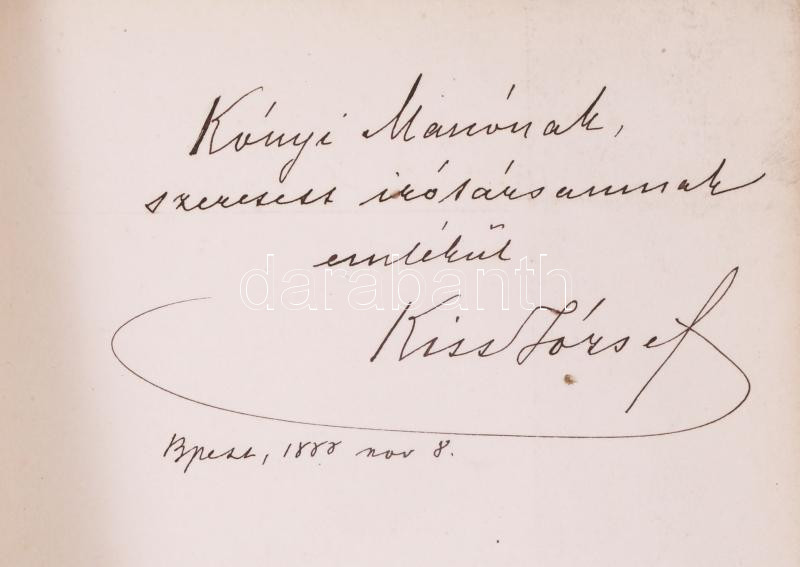 Kónyi Manónak,
szeretett irótársamnak
emlékül
darabanth
Kiss József
Bpest, 1888 nov 8.